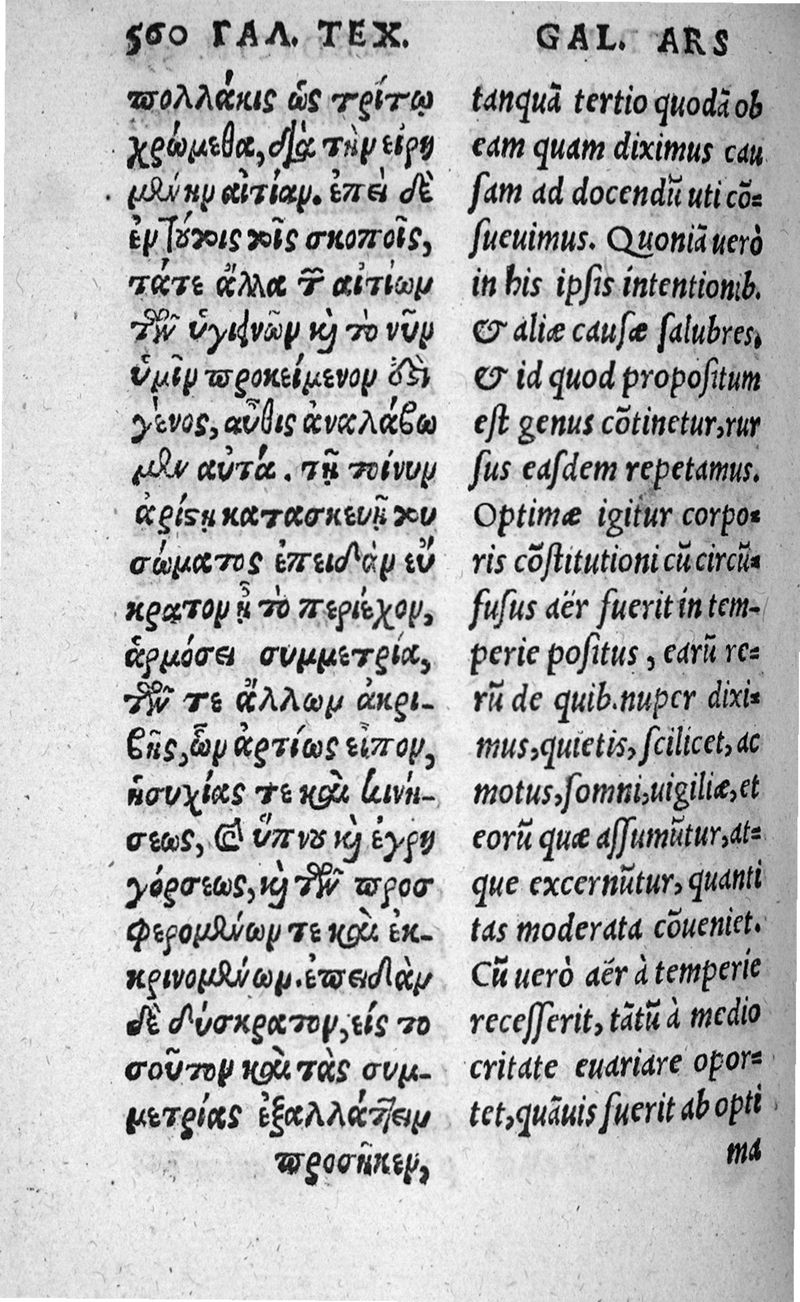 560 ΓΑΛ. ΤΕΧ.
πολλάκις ὡς τρίτῳ
χρώμεθα, διὰ τὴν εἰρη
μένην αἰτίαν. ἐπεὶ δὲ
ἐν τούτοις τοῖς σκοποῖς,
τάτε ἄλλα τῶν αἰτίων
τῶν ὑγιεινῶν καὶ τὸ νῦν
ὑμῖν προκείμενον ἐστὶ
γένος, αὖθις ἀναλάβω
μεν αὐτά. τῇ τοίνυν
ἀρίστῃ κατασκευῇ του
σώματος ἐπειδὰν εὔ
κρατον ᾖ τὸ περιέχον,
ἁρμόσει συμμετρία,
τῶν τε ἄλλων ἀκρι-
βῆς, ὧν ἀρτίως εἶπον,
ἡσυχίας τε καὶ κινή-
σεως, καὶ ὕπνου καὶ ἐγρη
γόρσεως, καὶ τῶν προσ
φερομένων τε καὶ ἐκ-
κρινομένων. ἐπειδὰν
δὲ δύσκρατον, εἰς το
σοῦτον καὶ τὰς συμ-
μετρίας ἐξαλλάττειν
προσῆκεν,
GAL. ARS
tanquã tertio quodã ob
eam quam diximus cau
ſam ad docendũ uti cõ=
ſueuimus. Quoniã uerò
in his ipſis intentionib.
& aliæ cauſæ ſalubres,
& id quod propoſitum
eſt genus cõtinetur, rur
ſus eaſdem repetamus.
Optimæ igitur corpo=
ris cõſtitutioni cũ circũ=
fuſus aër fuerit in tem-
perie poſitus, earũ re=
rũ de quib. nuper dixi=
mus, quietis, ſcilicet, ac
motus, ſomni, uigiliæ, et
eorũ quæ aſſumũtur, at=
que excernũtur, quanti
tas moderata cõueniet.
Cũ uerò aër à temperie
receſſerit, tãtũ à medio
critate euariare opor=
tet, quãuis fuerit ab opti
ma